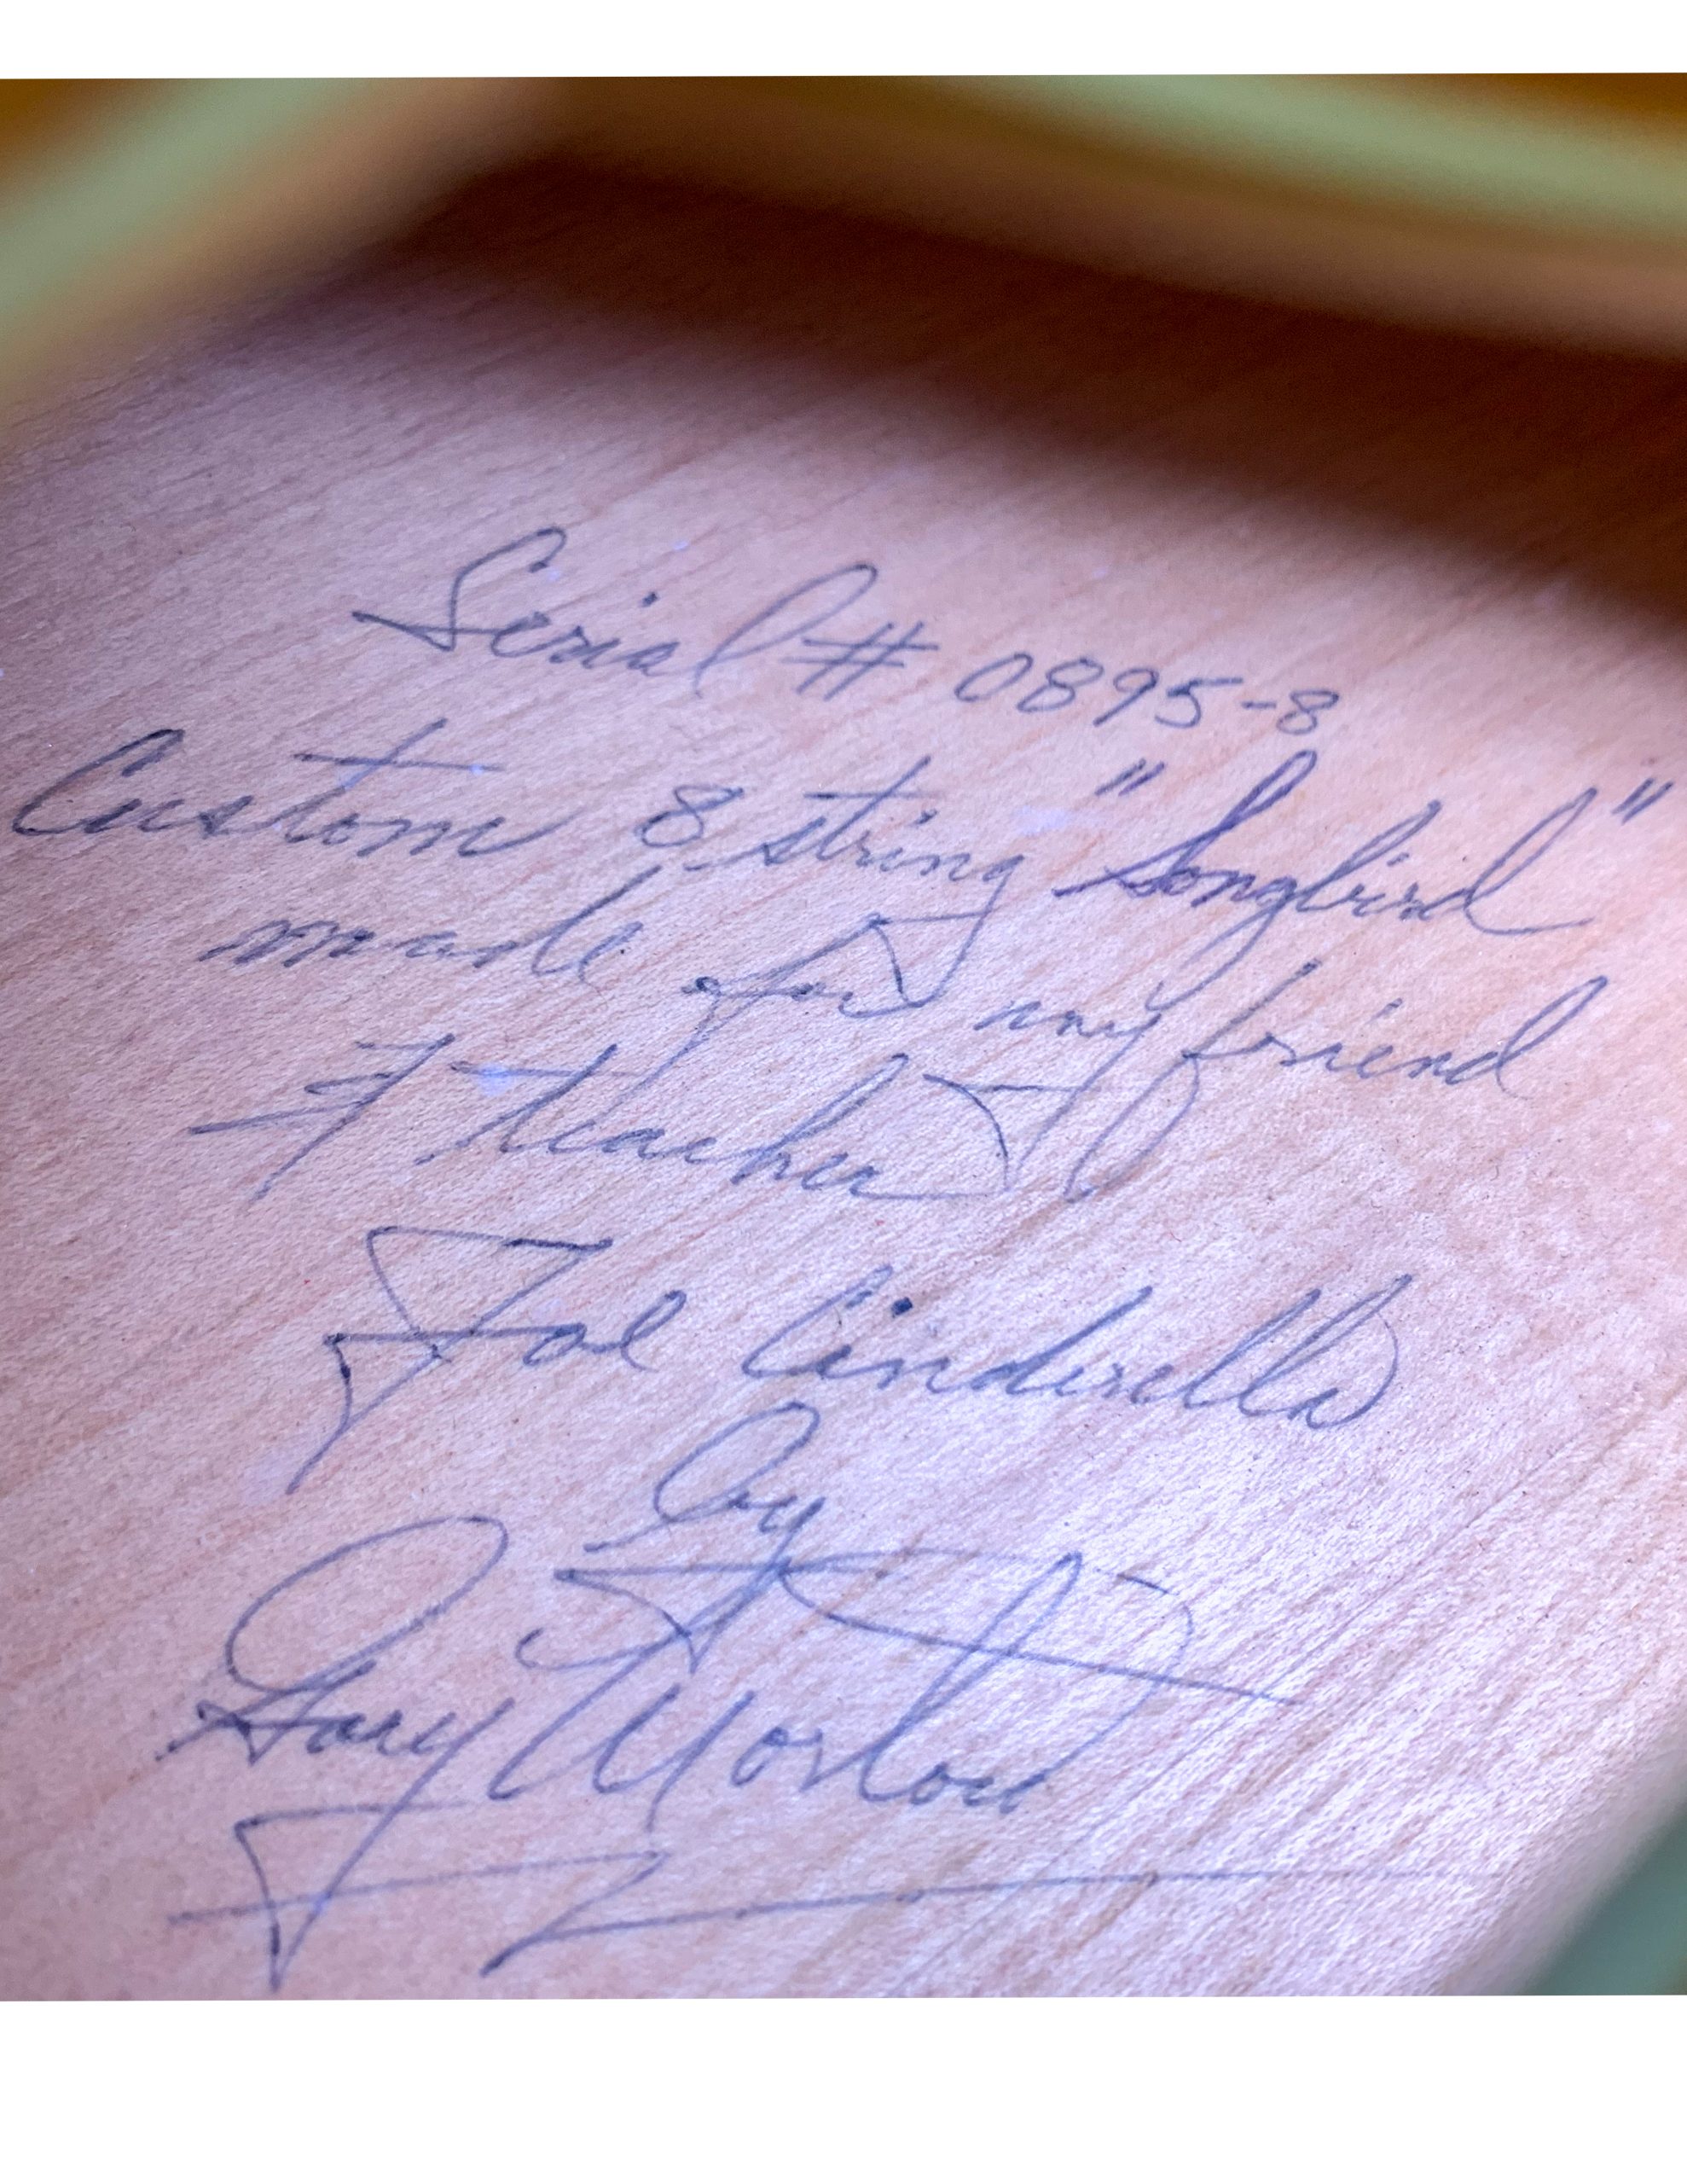 Serial # 0895-8
Custom 8 string "Songbird"
made for my friend
& teacher
Joe Cinderella
by
Gary Mortoro